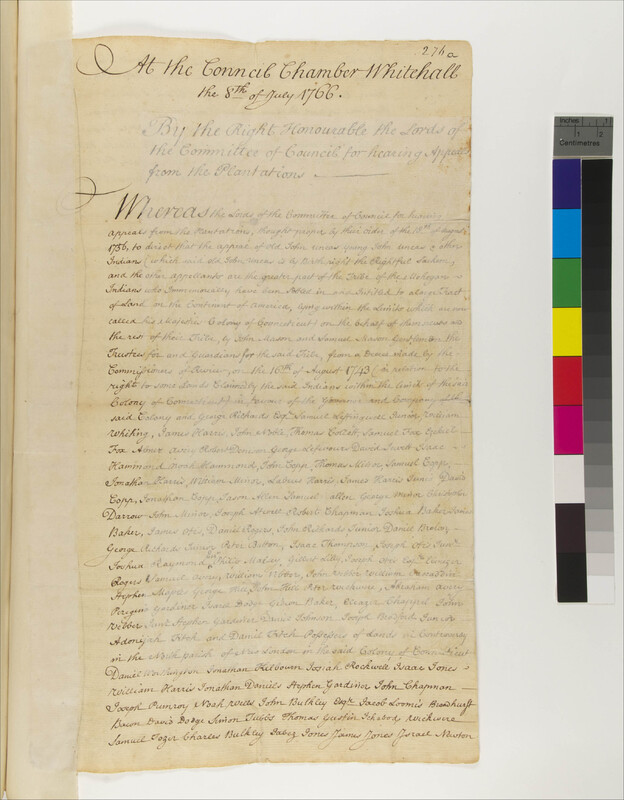 276a
At the Council Chamber Whitehall
the 8th of July 1766.
By the Right Honourable the Lords of
the Committee of Council for hearing Appeals
from the Plantations.
Whereas the Lords of the Committee of Council for hearing
appeals from the Plantations, thought proper by their Order of the of August
1756, to direct that the appeal of old John Uncas Young John Uncas & other
Indians (which said Old John Uncas is as such right the Rightful Sachem,
and the other appellants are the greater part of the Tribe of the Mohegan
Indians who Immemorially have been Seized in and Intitled to a large Tract
of Land on the Continent of America, lying within the Limits which are now
called his Majestys Colony of Connecticut) on the behalf of themselves and
the rest of their Tribe, by John Mason and Samuel Mason Gentlemen the
Trustees for and Guardians for the said Tribe, from a Decree made by the
Commissioners of Review, on the 16th of August 1743 (in relation to the
right to some Lands Claimed by the said Indians within the Limits of the
Colony of Connecticut) in favour of the Governor and Company
said Colony and George Richards Esqr. Samuel Lyftinguell William
Whiting, James Harris, John Noble, Thomas Collet, Samuel Fox Ezekiel
Fox Abner Avery Robert Denison George Lefevour David Jacob Isaac
Hammond Hammond, John Copp Thomas Minor, Samuel Copp,
Jonathan Harris, William Minor, Lebeus Harris, James Harris Junr. David
Copp, Jonathan Copp Jason Allen Samuel Allen George Minor
Darrow John Minor Joseph Atwell Robert Chapman Joshua Baker
Baker, James Otis, Daniel Rogers, John Richards Junior Daniel
George Richards Junior Peter Bolton, Isaac Thompson, Joseph Otis Junr.
Joshua Raymond, Philip Maley, Gilbert Lilly, Joseph Esqr.
Rogers Samuel Avery, William Vibber, John Vibber William
Stephen Maples George Hill, John Hill Peter Wickwire, Abraham Avery
Peregrin Gardiner Isaac Dodge Gideon Baker, Eleazer Chappel John
Vibber Junr. Stephen Gardiner David Johnson Joseph Bradford Junr.
Adonijah Fitch and Daniel Fitch Possessors of Lands in Controversy
in the North Parish of New London in the said Colony of Connecticut
Daniel Worthington Jonathan Kilbourn Josiah Rockwell Isaac Jones
William Harris Jonathan Daniels Stephen Gardiner John Chapman
Joseph Pumroy Noah Wells John Bulkley Esqr. Jacob Loomis
Bacon David Dodge Simon Tubbs Thomas Gustin Ichabod Wickwire
Samuel Tozer Charles Bulkley Jabez Jones James Jones Israel Newton
Inches
Centimetres
1
2